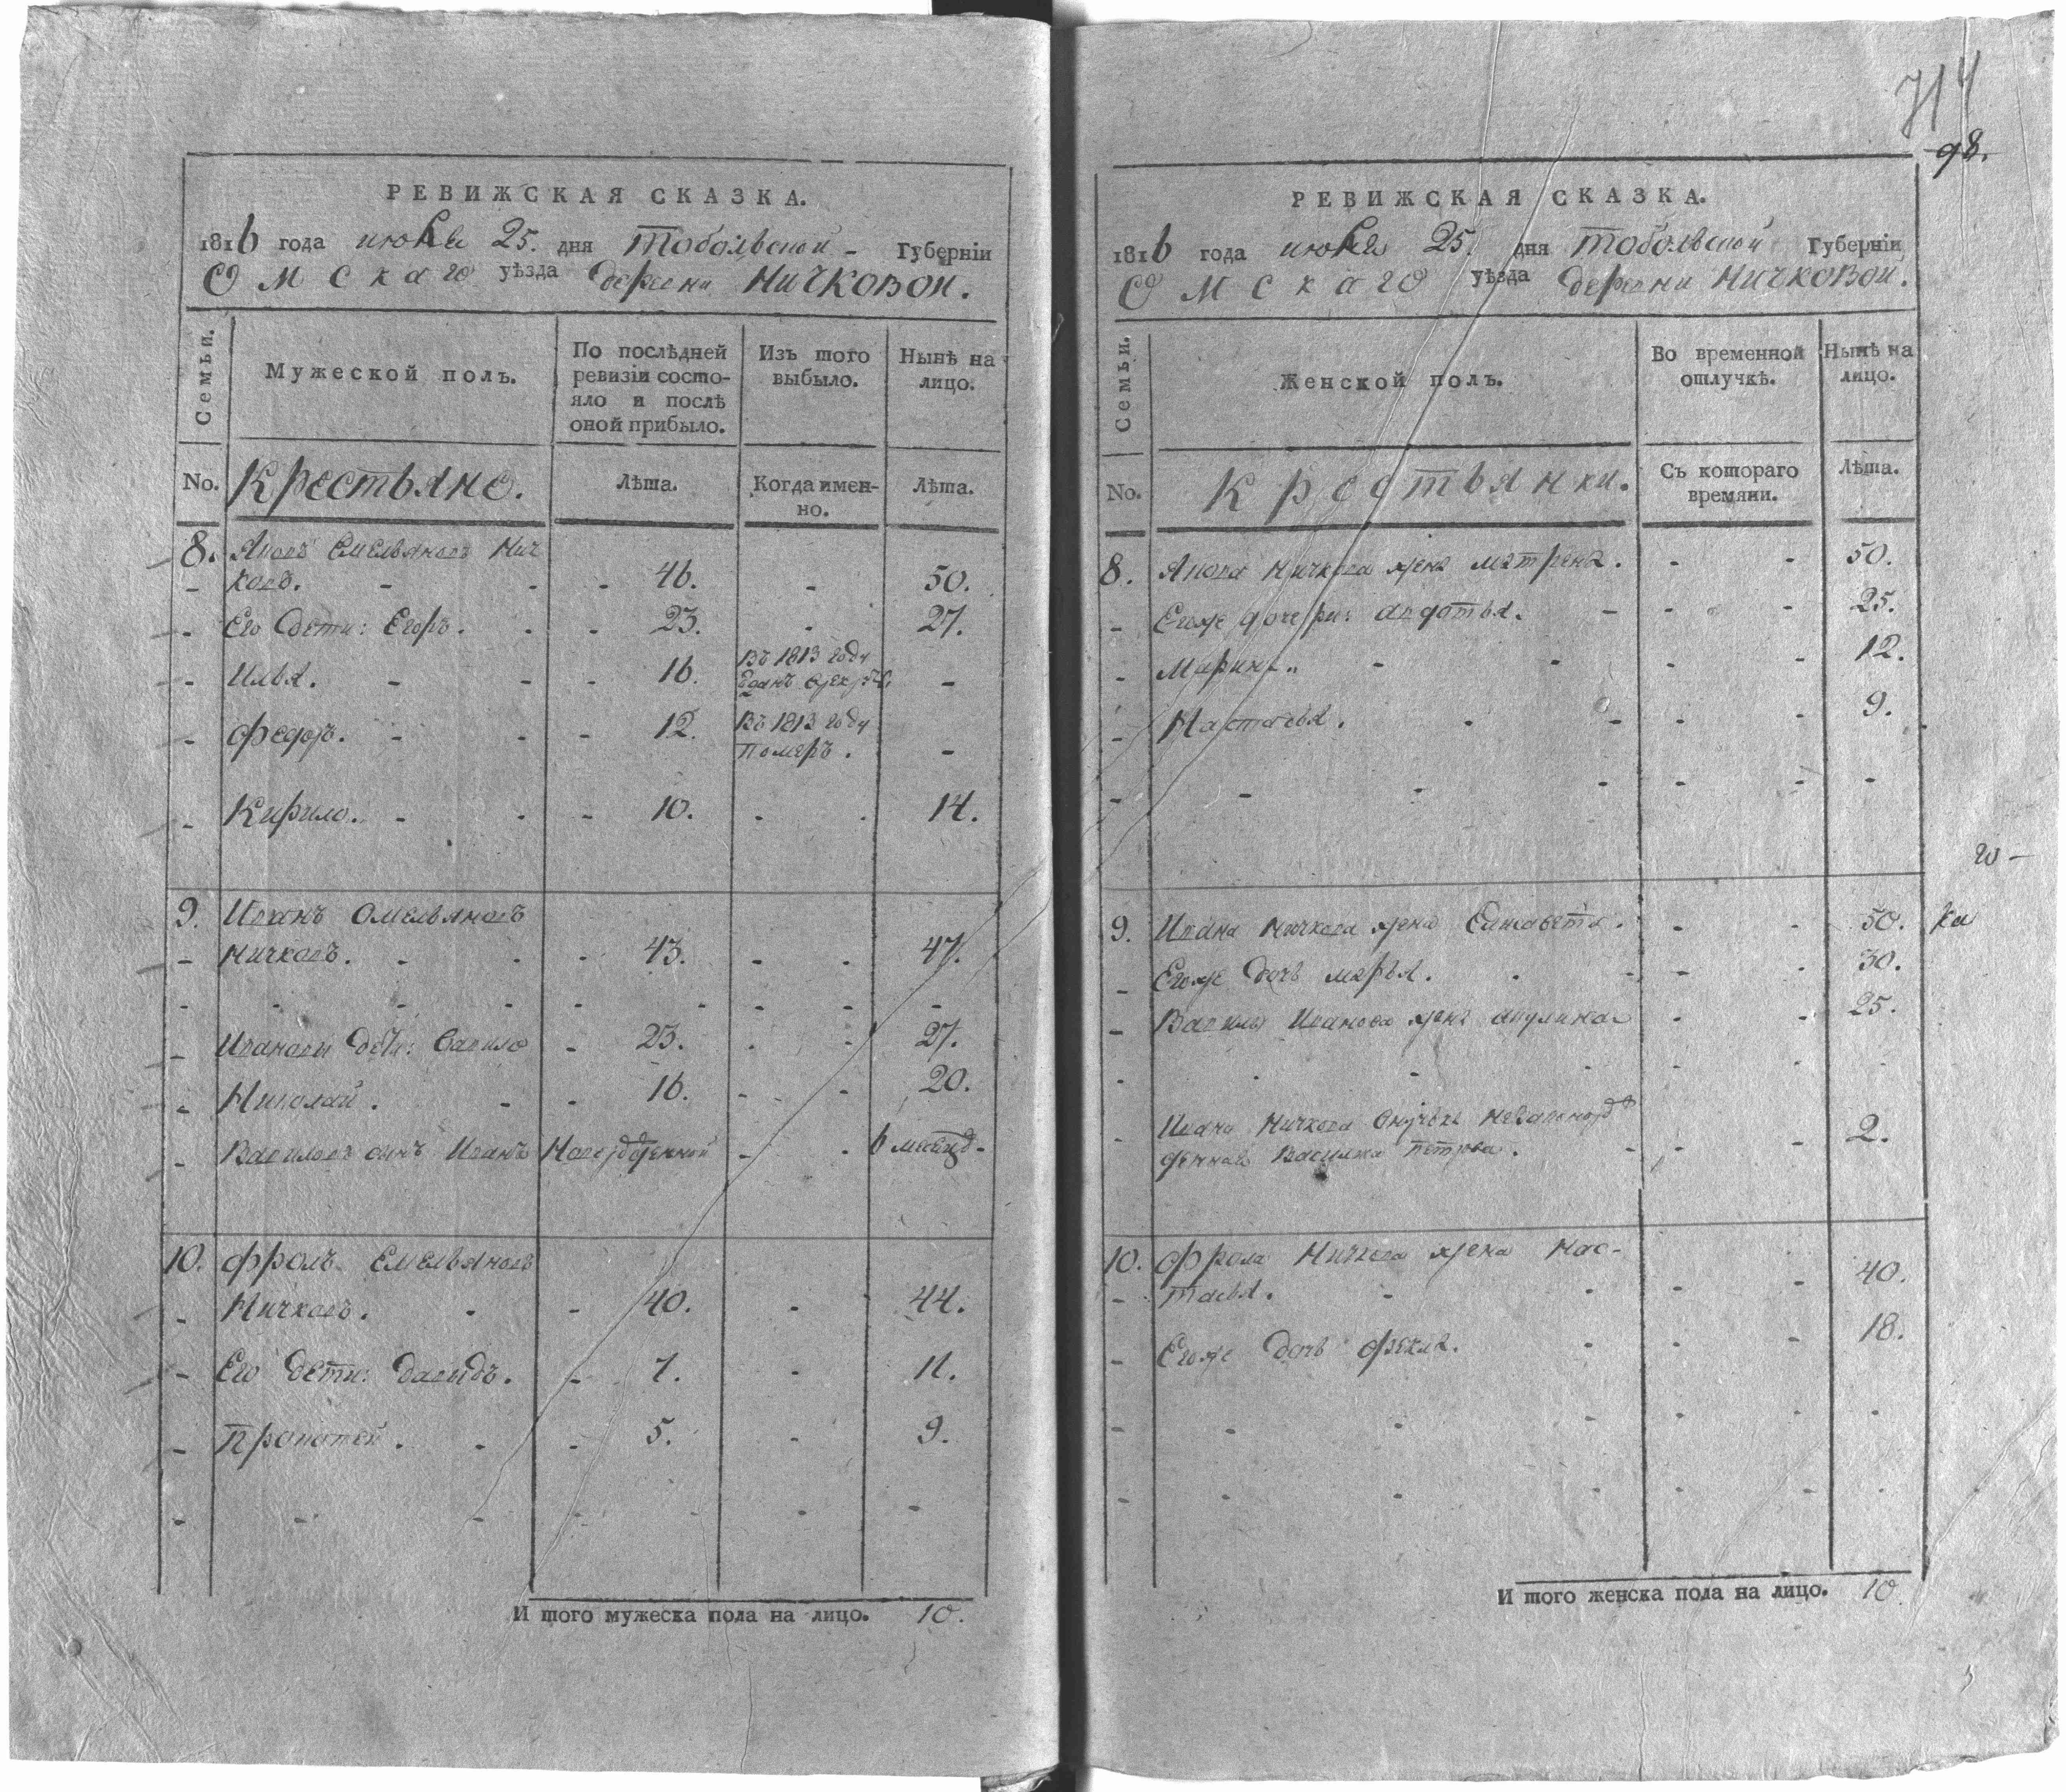 РЕВИЖСКАЯ СКАЗКА.
1816 года июня 25. дня Тобольской Губернїи
Омскаго уѣзда деревни Ничковой.
Семьи.
Мужеской полъ.
По послѣдней ревизїи состояло и послѣ оной прибыло.
Изъ того выбыло.
Нынѣ на лицо.
No. Крестьяне.
Лѣта.
Когда именно.
Лѣта.
8. Яковъ Емельяновъ Нич
ковъ. 46. 50.
Его дети: Егоръ. 23. 27.
Илья. 16. Въ 1813 году
Федоръ. 12. Въ 1813 году
померъ.
Кирило. 10. 14.
9. Иванъ Омельяновъ
Ничковъ. 43. 47.
Ивановы дѣти: Василе 23. 27.
Николай. 16. 20.
Васильевъ сынъ Иванъ Новорожденной 6 месецо.
10. Фролъ Емельяновъ
Ничковъ. 40. 44.
Его дети: Давидъ. 7. 11.
Прокопей. 5. 9.
И того мужеска пола на лицо. 10.
714
98.
РЕВИЖСКАЯ СКАЗКА.
1816 года июня 25. дня Тобольской Губернїи
Омскаго уѣзда деревни Ничковой.
Семьи.
Женской полъ.
Во временной отлучкѣ.
Нынѣ на лицо.
No. Крестьянки.
Съ котораго времяни.
Лѣта.
8. Якова Ничкова жена Матрена. 50.
Егоже дочери: Авдотья. 25.
Марина. 12.
Настасья. 9.
9. Ивана Ничкова жена Елисавета. 50.
Егоже дочь Марья. 30.
Василья Иванова жена Акулина 25.
Ивана Ничкова внучька незаконорож
денная Василиса Петрова. 2.
10. Фрола Ничкова жена Нас-
тасья. 40.
Егоже дочь Фекла. 18.
И того женска пола на лицо. 10.